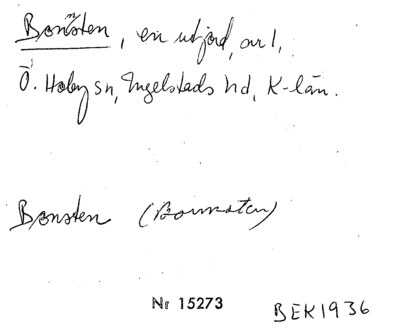 Bonsten, en utjord, nr 1,
Ö. Hoby sn, Ingelstads hd, K-län.
Bonsten (Bonnsten)
Nr 15273 BEK 1936